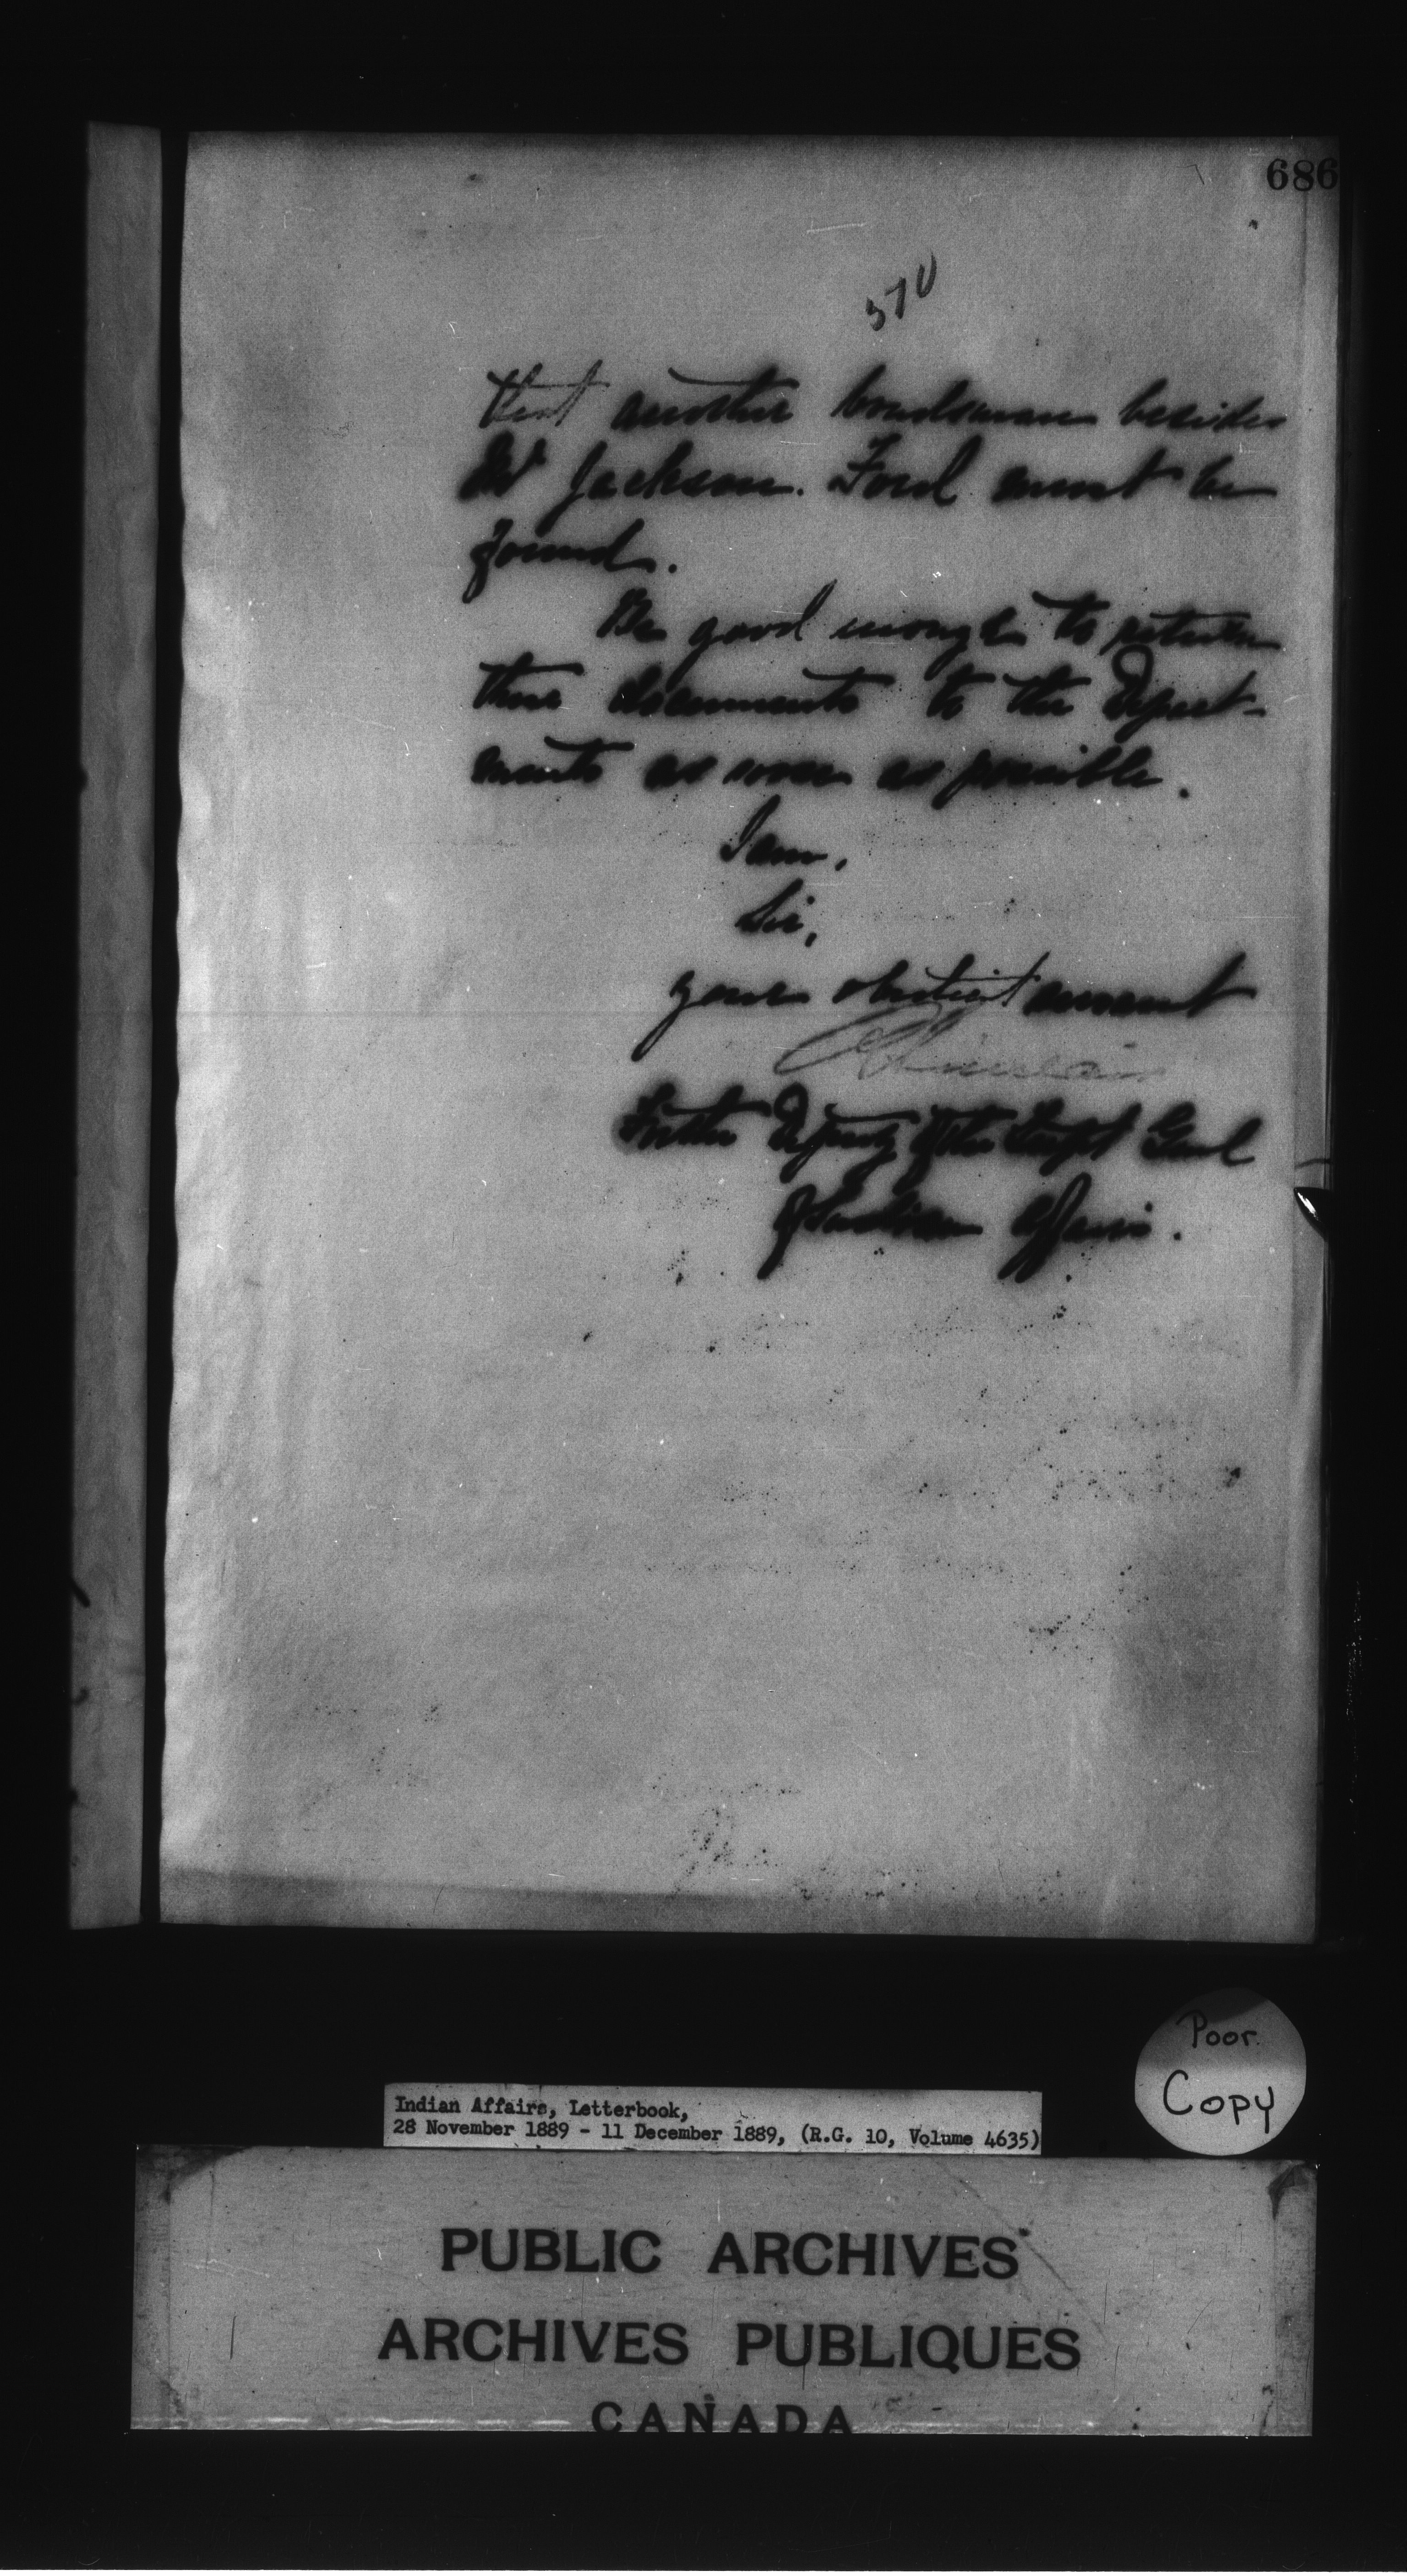 686
570
that another bondsman besides
Mr Jackson. Ford must be
found.
Be good enough to return
these documents to the Depart-
ments as soon as possible.
I am,
Sir,
your obedient servant
R Sinclair
For the Deputy of the Supt Genl
of Indian Affairs.
Poor
Copy
Indian Affairs, Letterbook,
28 November 1889 - 11 December 1889, (R.G. 10, Volume 4635)
PUBLIC ARCHIVES
ARCHIVES PUBLIQUES
CANADA